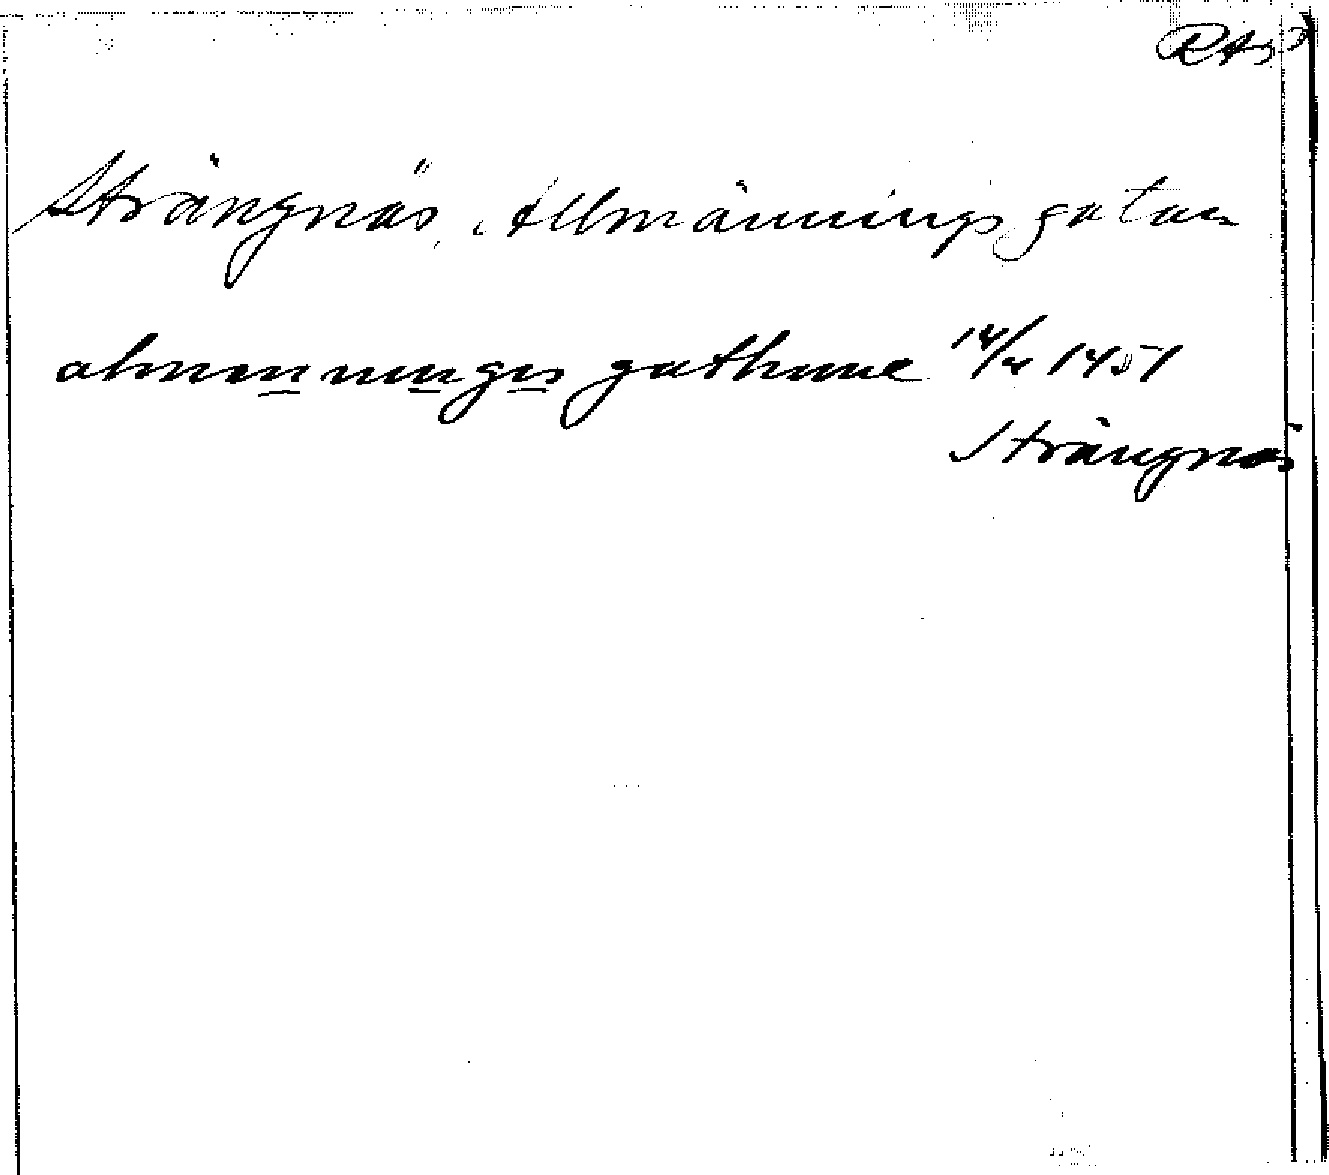 Strängnäs, Allmänningsgatan
almenningis gathunne 14/4 1451
Strängnäs